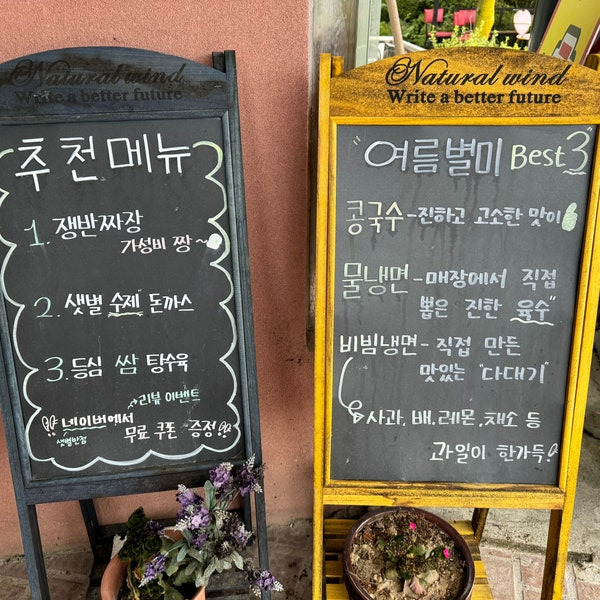 Natural wind
Write a better future
추천메뉴
1. 쟁반짜장
가성비 짱~
2. 샛별 수제" 돈까스
3. 등심 쌈 탕수육
리뷰 이벤트
네이버에서
샛별반점
무료 쿠폰 증정
Natural wind
Write a better future
"여름별미 Best 3"
콩국수 - 진하고 고소한 맛이
물냉면 - 매장에서 직접
뽑은 진한 육수"
비빔냉면 - 직접 만든
맛있는 "다대기"
사과, 배, 레몬, 채소 등
과일이 한가득!